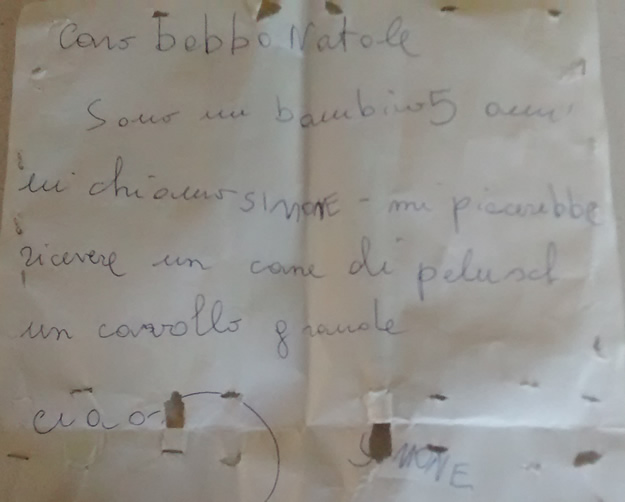 Caro babbo Natale
Sono un bambino 5 anni
mi chiamo SIMONE - mi piacerebbe
ricevere un cane di pelusch
un cavallo grande
ciao
SIMONE